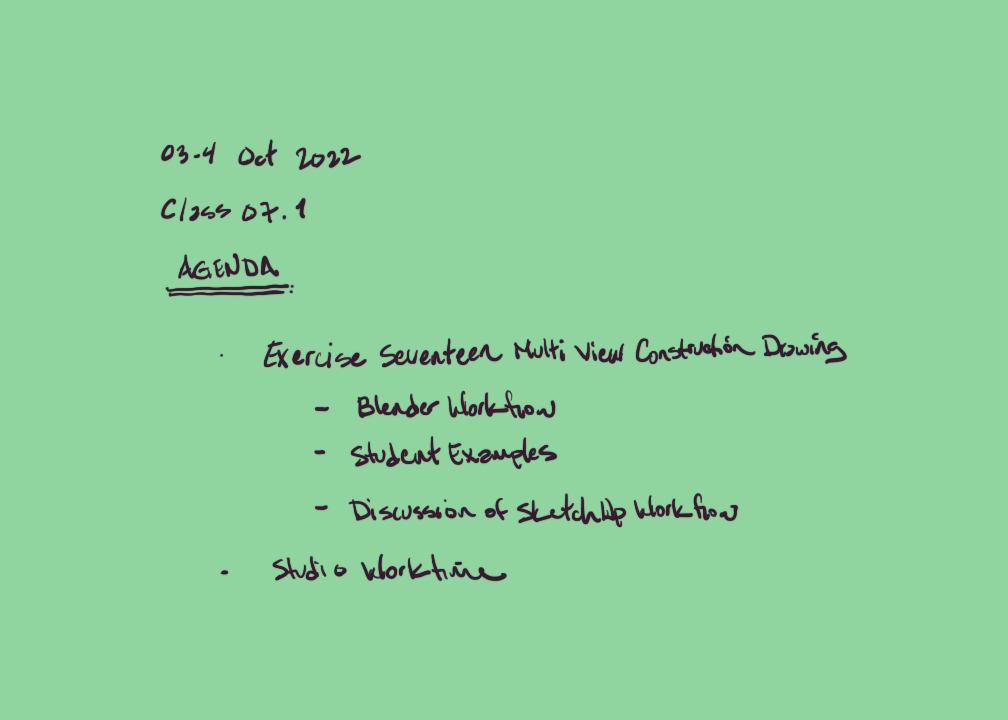 03-4 Oct 2022
Class 07.1
AGENDA
· Exercise Seventeen Multi View Construction Drawing
- Blender Workflow
- Student Examples
- Discussion of SketchUp Workflow
- Studio Worktime